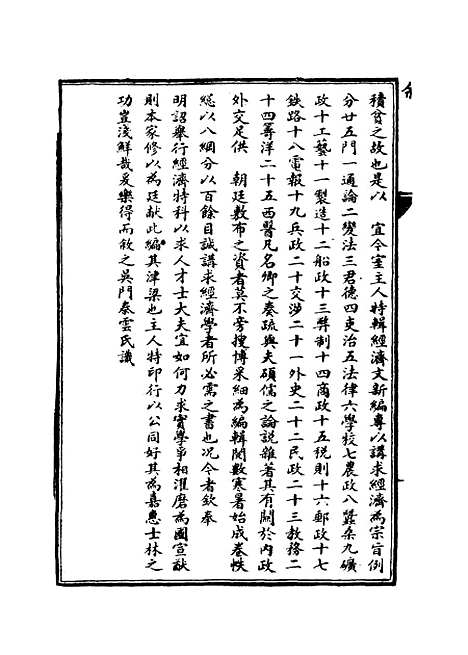 積貧之故也是以　宜今室主人特輯經濟文新編專以講求經濟為宗旨例
分廿五門一通論二變法三君德四吏治五法律六學校七農政八蠶桑九礦
政十工藝十一製造十二船政十三幣制十四商政十五稅則十六郵政十七
鉄路十八電報十九兵政二十交涉二十一外史二十二民政二十三教務二
十四籌洋二十五西醫凡名卿之奏疏與夫碩儒之論說雜著其有關於內政
外交足供　朝廷敷布之資者莫不旁搜博采細為編輯閱數寒暑始成卷帙
總以八綱分以百餘目誠講求經濟學者所必需之書也况今者欽奉
明詔舉行經濟特科以求人才士大夫宜如何力求實學爭相濯磨為國宣猷
則本家修以為廷獻此編其津梁也主人特印行以公同好其為嘉惠士林之
功豈淺鮮哉爰樂得而敘之吳門秦雲氏識